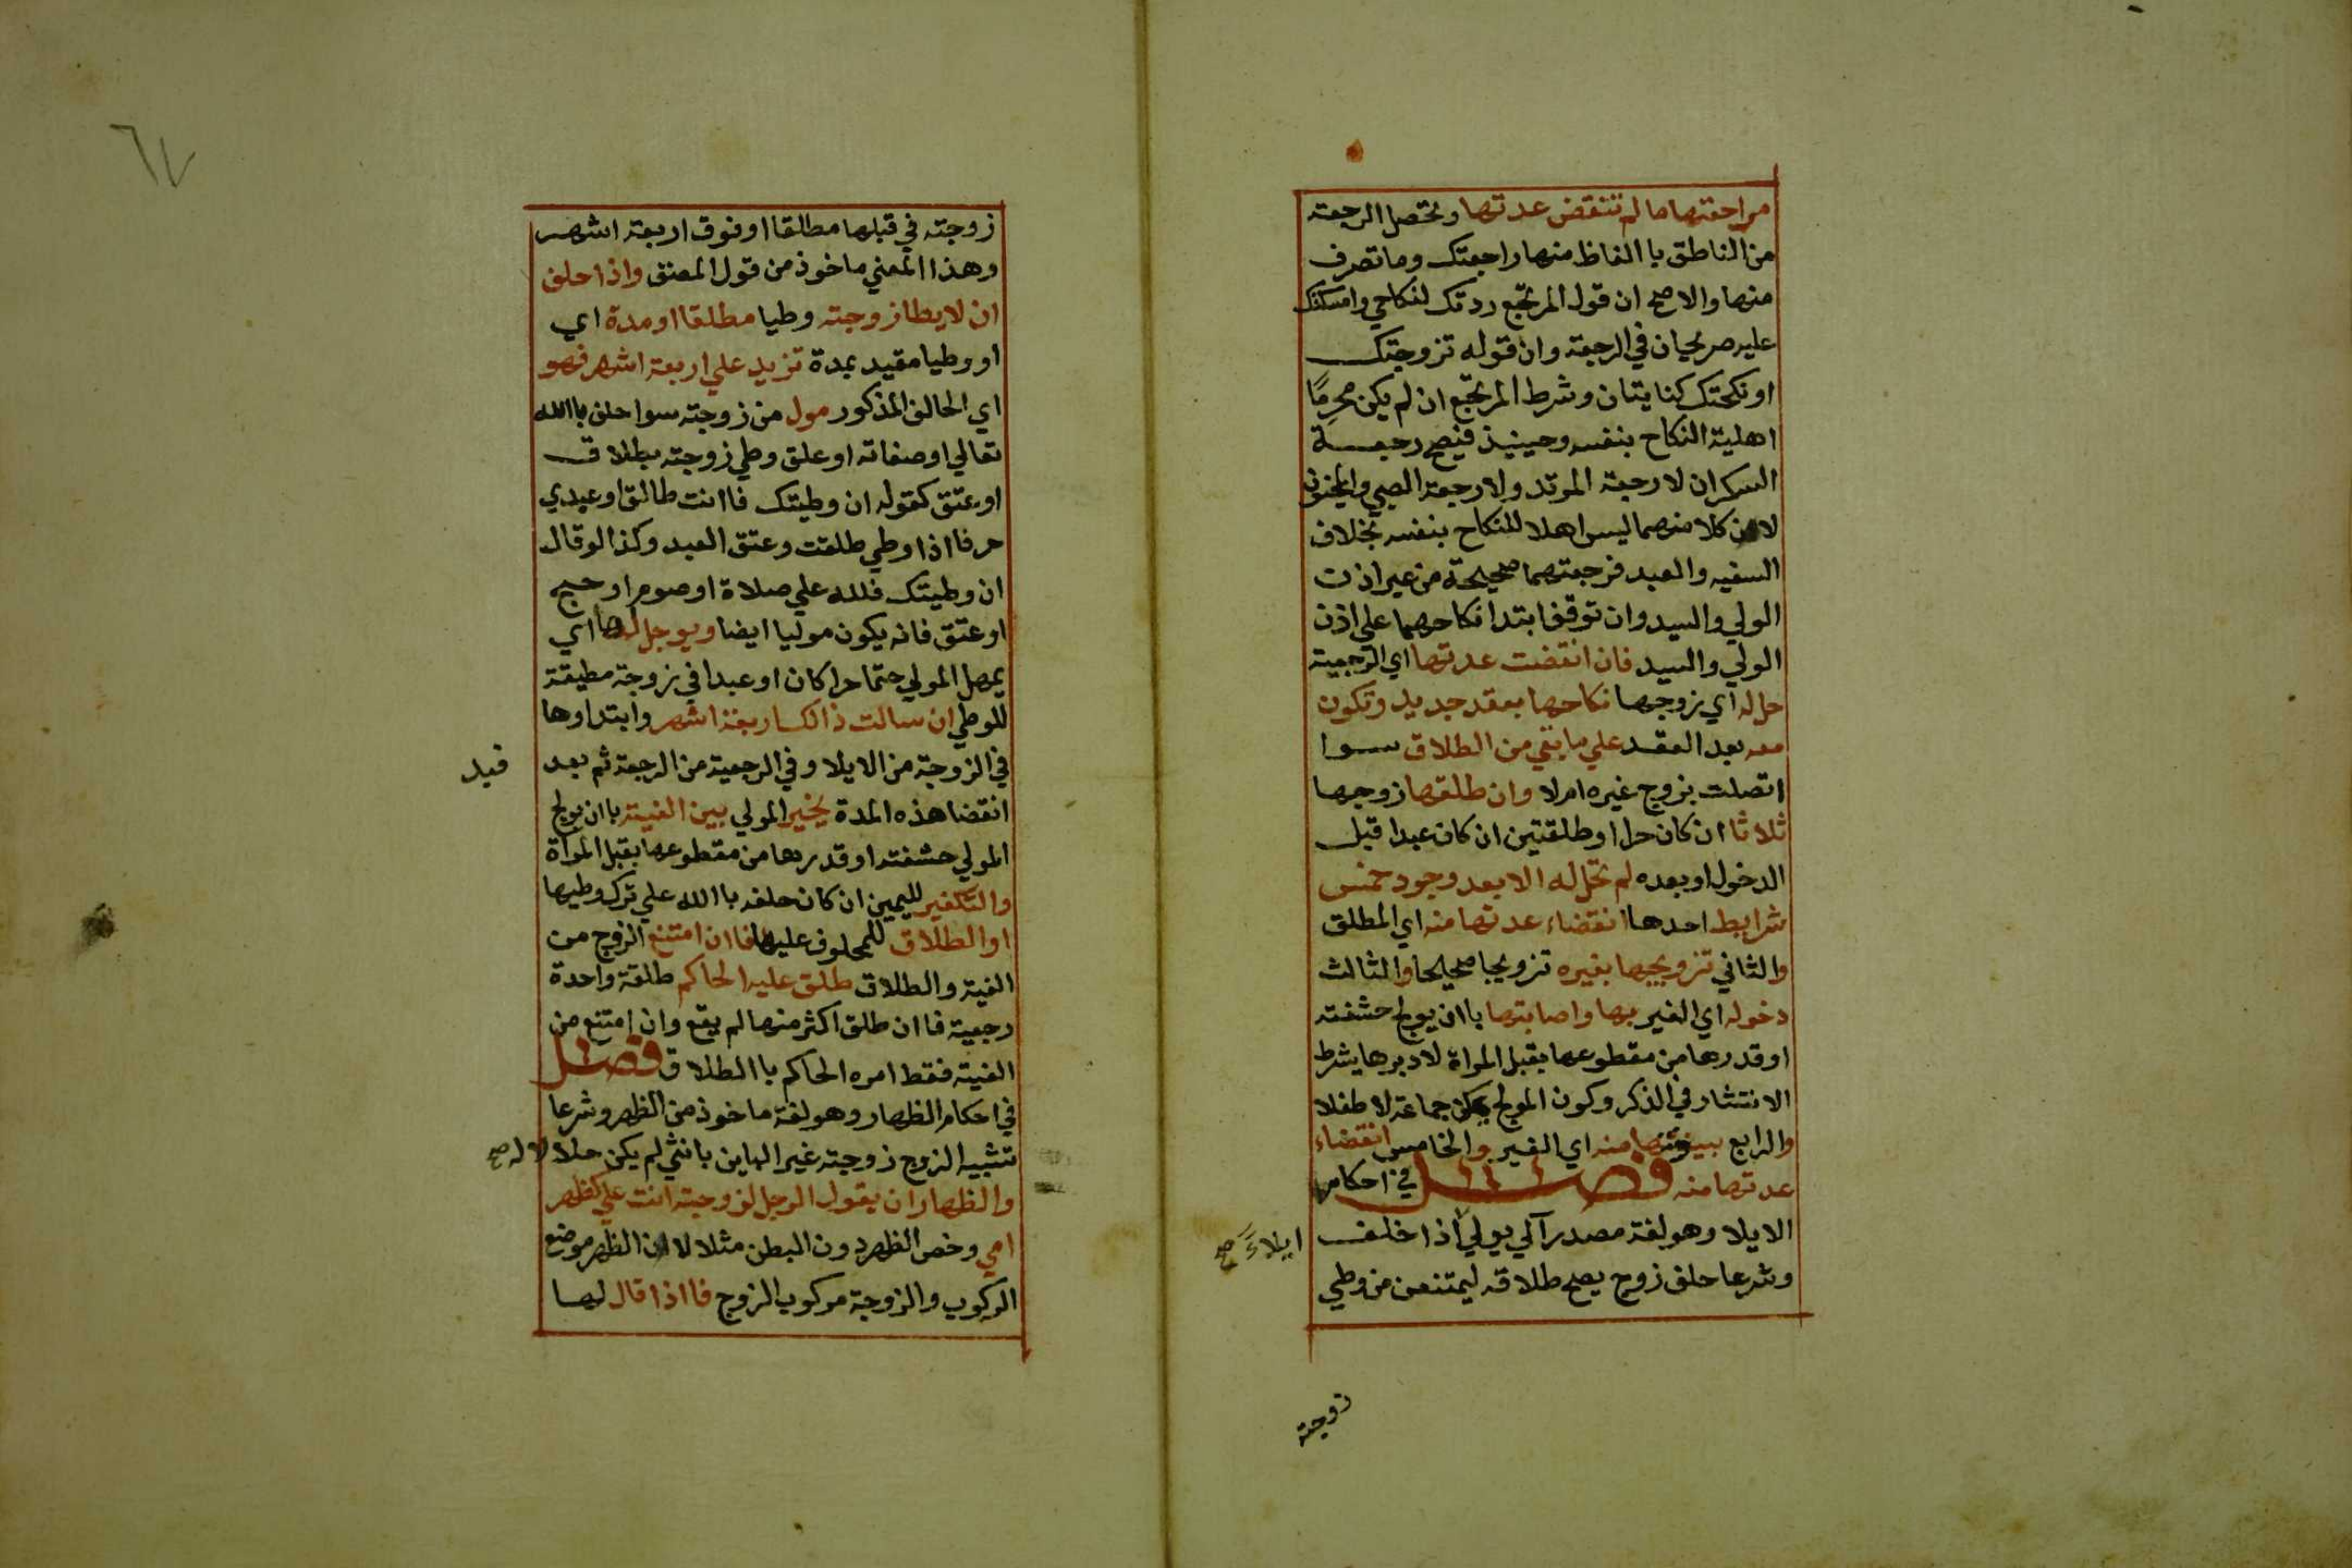 مراجعتها ما لم تنقض عدتها وتحصل الرجعة
من الناطق باالفاظ منها راجعتك وما تصرف
منها والاصح ان قول المرتجع ردتك لنكاحي وامسكتك
عليه صريحان في الرجعة وان قوله تزوجتك
او نكحتك كنايتان وشرط المرتجع ان لم يكن محرمًا
اهلية النكاح بنفسه وحينيذ فتصح رجعة
السكران لا رجعة المرتد ولا رجعة الصبي والمجنون
لان كلا منهما ليس اهلا للنكاح بنفسه بخلاف
السفيه والعبد فرجعتهما صحيحة من غير اذن
الولي والسيد وان توقف ابتدا نكاحهما علي اذن
الولي والسيد فان انقضت عدتها اي الرجعية
حل له اي زوجها نكاحها بعقد جديد وتكون
معه بعد العقد علي ما بقي من الطلاق سوا
اتصلت بزوج غيره ام لا وان طلقها زوجها
ثلاثا ان كان حرا او طلقتين ان كان عبدا قبل
الدخول او بعده لم تحل له الا بعد وجود خمس
شرايط احدها انقضاء عدتها منه اي المطلق
والثاني تزويجها بغيره تزويجا صحيحا والثالث
دخوله اي الغير بها واصابتها باان يولج حشفته
او قدرها من مقطوعها بقبل المراة لا دبرها بشرط
الانتشار في الذكر وكون المولج يمكن جماعه لا طفلا
والرابع بينونتها منه اي الغير والخامس انقضاء
عدتها منه فصل في احكام
الايلا وهو لغة مصدر آلي يولي اذا حلف
ايلاءً صح
وشرعا حلف زوج يصح طلاقه ليمتنعن من وطي
زوجته
٦٧
زوجته في قبلها مطلقا او فوق اربعة اشهر
وهذا المعني ماخوذ من قول المصنف واذا حلف
ان لا يطا زوجته وطيا مطلقا او مدة اي
او وطيا مقيد بمدة تزيد علي اربعة اشهر فهو
اي الحالف المذكور مول من زوجته سوا حلف باالله
تعالي او صفاته او علق وطي زوجته بطلاق
او عتق كقوله ان وطيتك فاانت طالق او عبدي
حر فااذا وطي طلقت وعتق العبد وكذا لو قال
ان وطيتك فلله علي صلاة او صوم او حج
او عتق فانه يكون موليا ايضا ويوجل لها اي
يمهل المولي حتما حرا كان او عبدا في زوجة مطيقة
للوطي ان سالت ذالك اربعة اشهر وابتداوها
في الزوجة من الايلا وفي الرجعية من الرجعة ثم بعد
قيد
انقضا هذه المدة يخير المولي بين الفيئة باان يولج
المولي حشفته او قدرها من مقطوعها بقبل المراة
والتكفير لليمين ان كان حلفه باالله علي ترك وطيها
او الطلاق للمحلوف عليها فاان امتنع الزوج من
الفية والطلاق طلق عليه الحاكم طلقة واحدة
رجعية فاان طلق اكثر منها لم يقع وان امتنع من
الفية فقط امره الحاكم باالطلاق فصل
في احكام الظهار وهو لغة ماخوذ من الظهر وشرعا
تشبيه الزوج زوجته غير الباين بانثي لم يكن حلالا له صح
والظهار ان يقول الرجل لزوجته انت علي كظهر
امي وخص الظهر دون البطن مثلا لان الظهر موضع
الركوب والزوجة مركوب الزوج فااذا قال لها